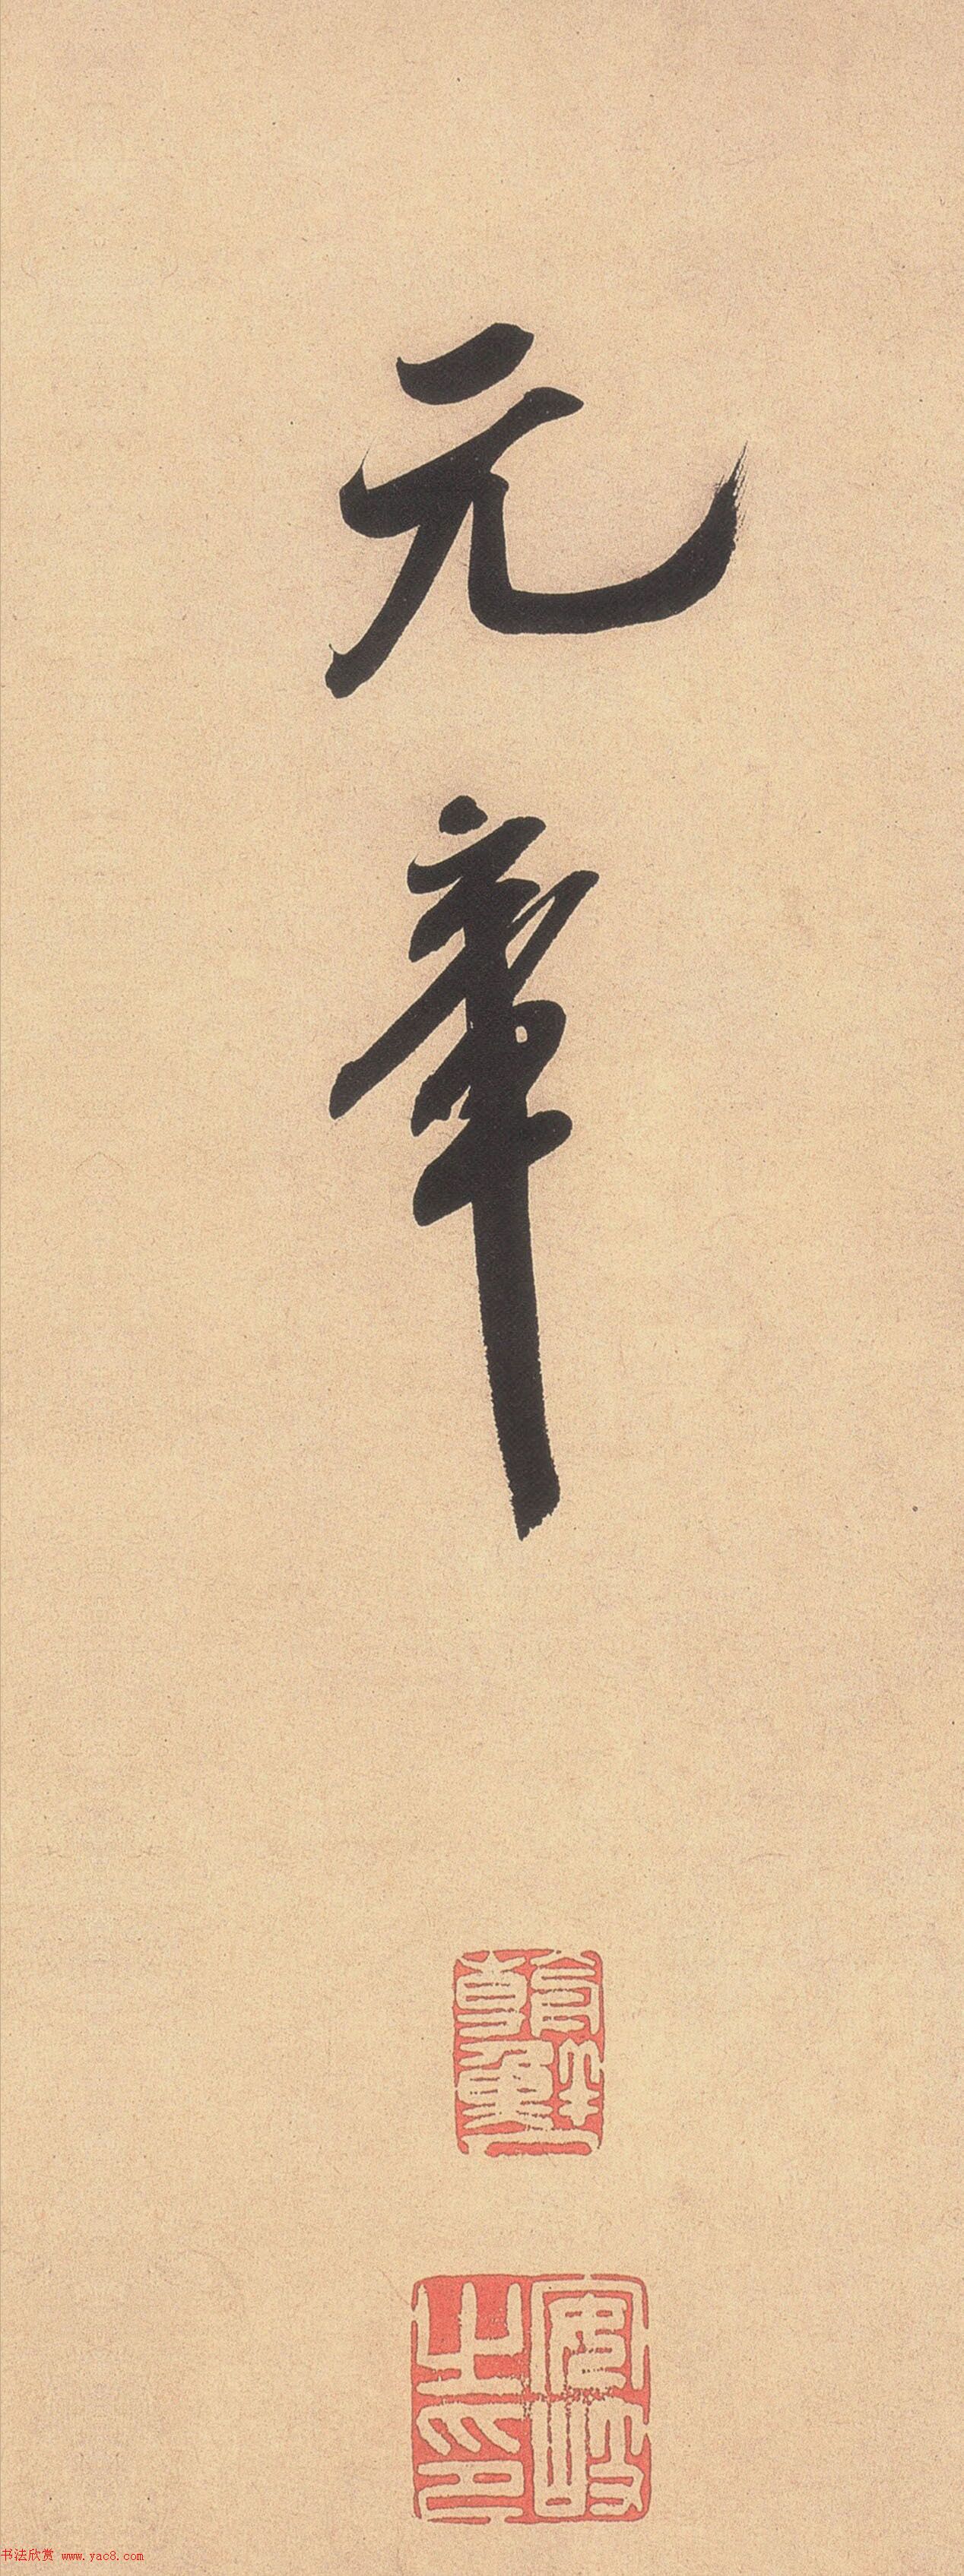 元章
安岐之印
书法欣赏 www.yac8.com